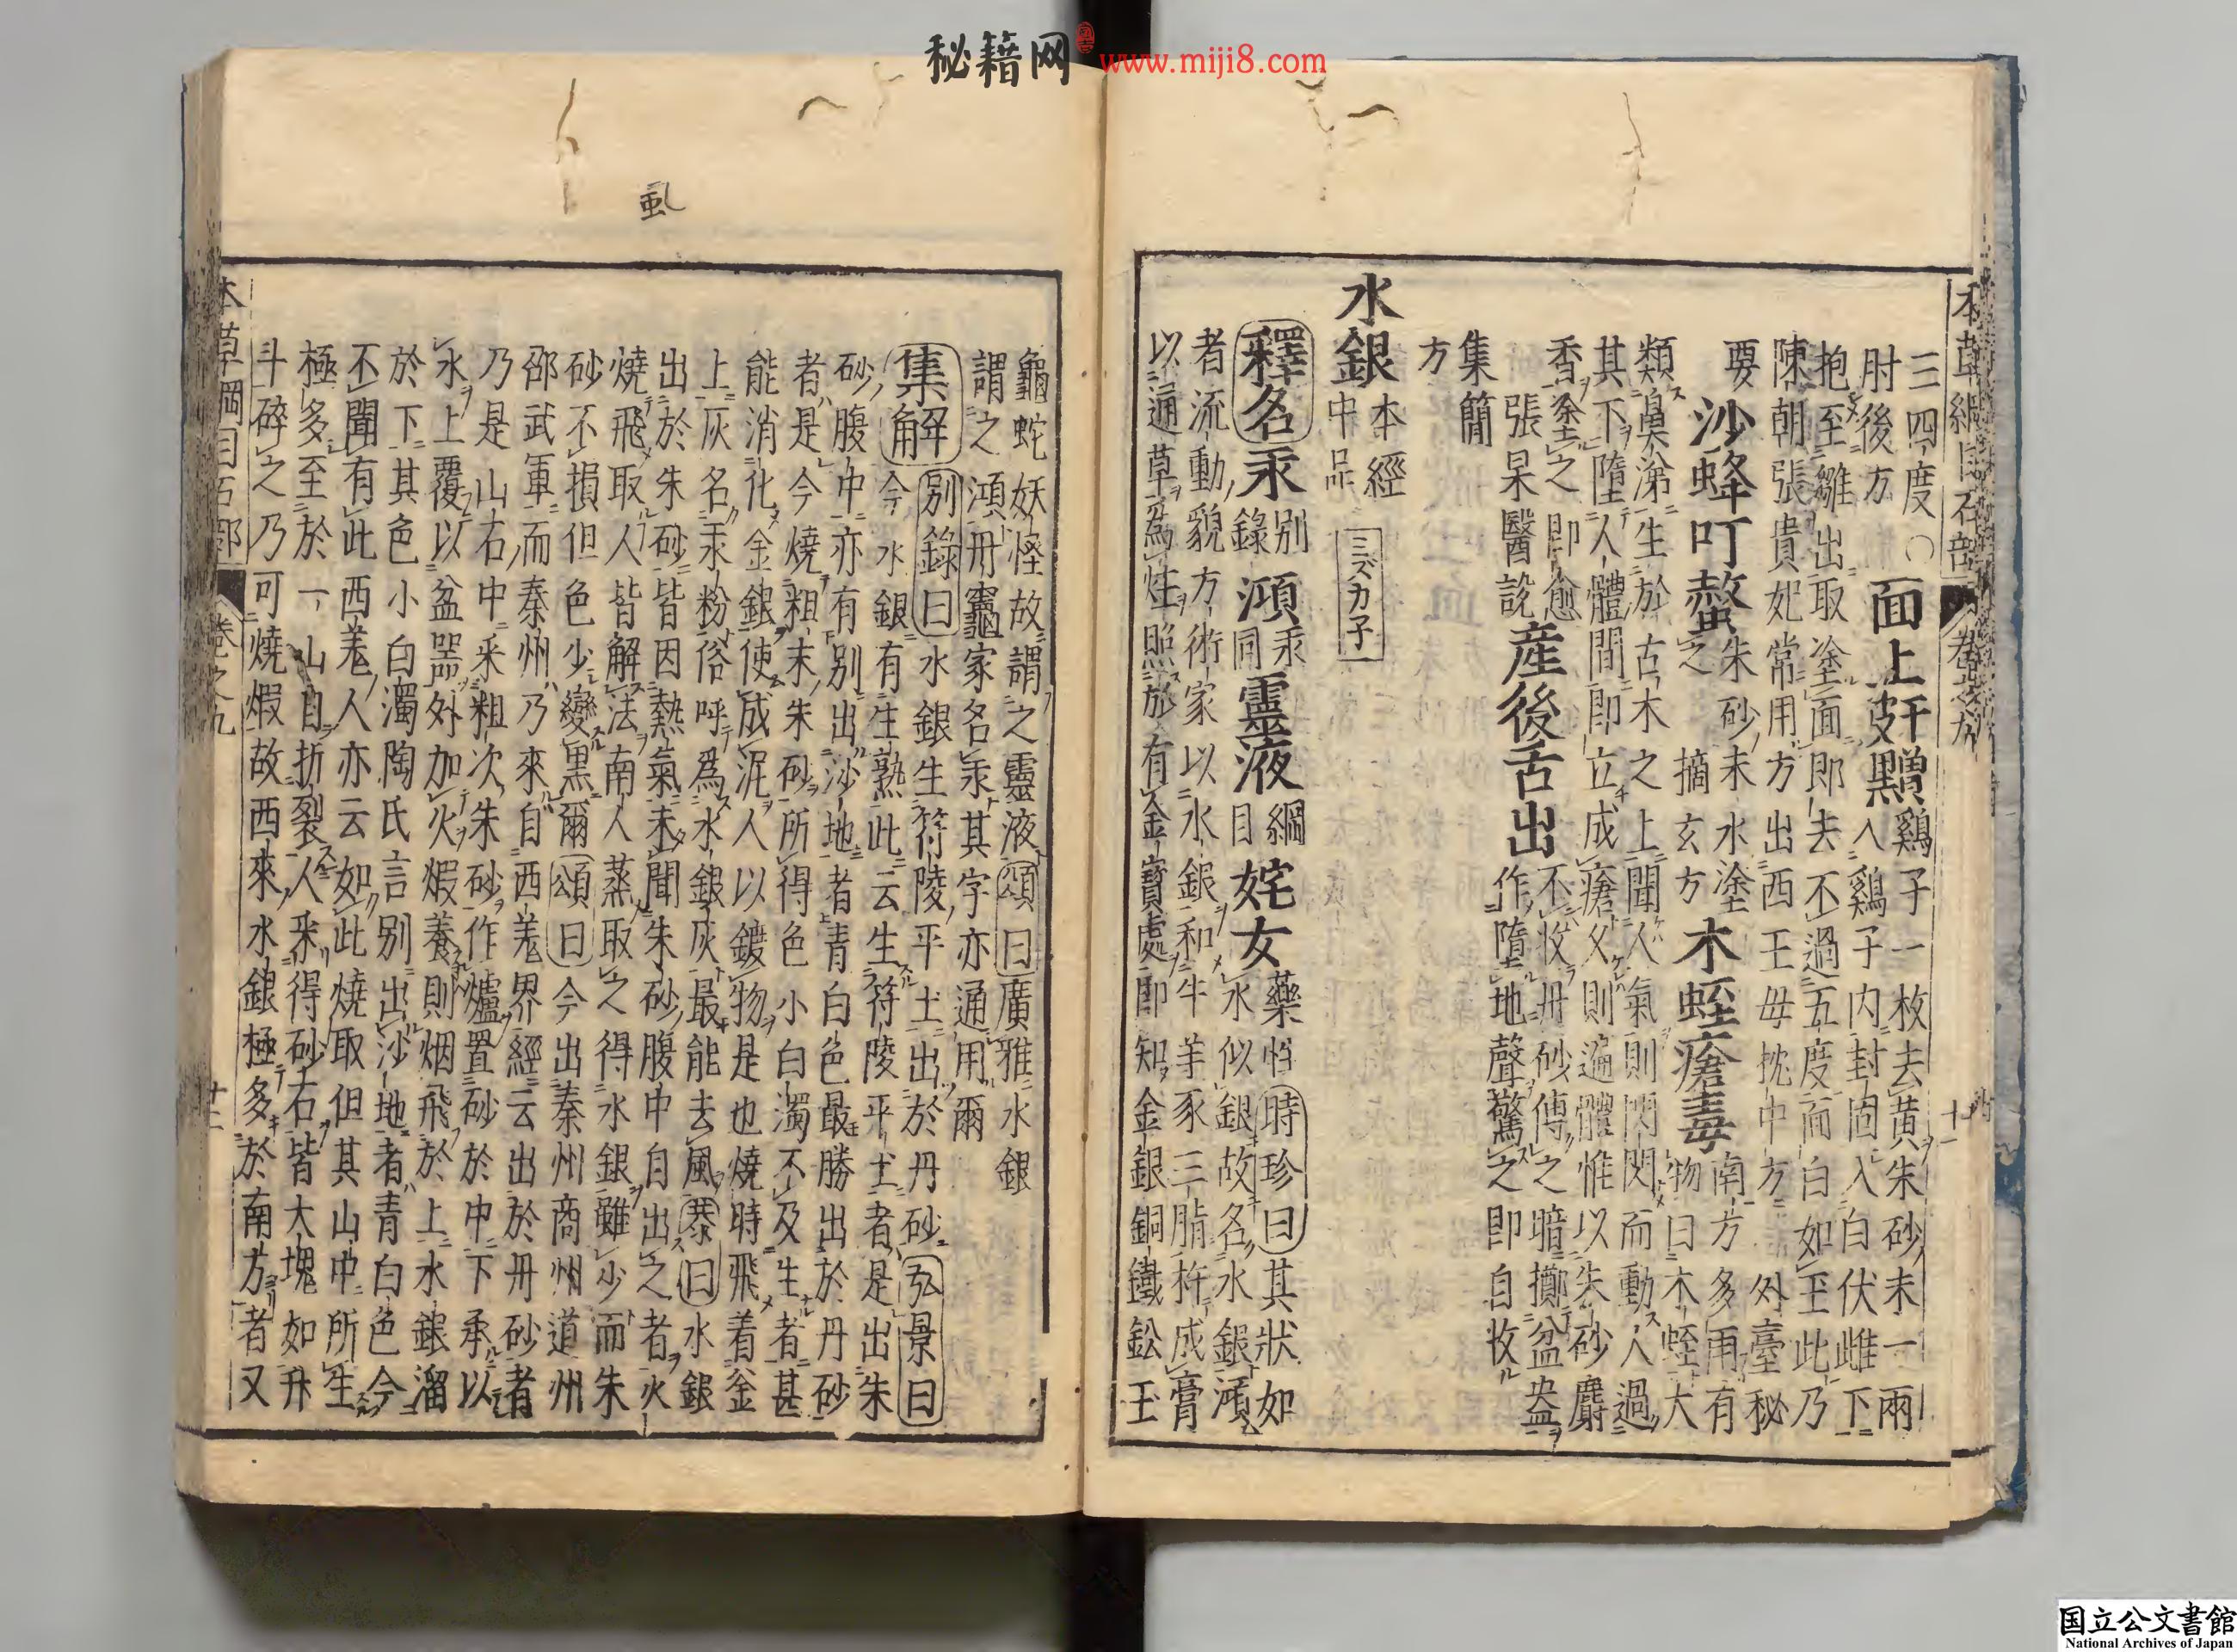 秘籍网 www.miji8.com
本草綱目石部 卷之九 十一
三四度○面上皯䵴鷄子一枚去黄朱砂末一兩
肘後方入鷄子内封固入白伏雌下
抱至雛出取塗面即去不過五度面白如玉此乃
陳朝張貴妃常用方出西王母枕中方外臺秘
要沙蜂叮螫朱砂末水塗之摘玄方木蛭瘡毒南方多雨有物曰木蛭大
類鼻涕生於古木之上聞人氣則閃閃而動人過
其下墮人體間即立成瘡久則遍體惟以朱砂麝
香塗之即愈張杲醫説産後舌出不收丹砂傅之暗擲盆盎作墮地聲驚之即自收
集簡
方
水銀本經中品ミズカ子
釋名汞别錄澒同汞靈液綱目姹女藥性時珍曰其狀如水似銀故名水銀澒
者流動貌方術家以水銀和牛羊豕三脂杵成膏
以通草爲炷照於有金寳處即知金銀銅鐵鉛玉
龜蛇妖怪故謂之靈液頌曰廣雅水銀
謂之澒丹竈家名汞其字亦通用爾
集解别錄曰水銀生符陵平土出於丹砂弘景曰
今水銀有生熟此云生符陵平土者是出朱
砂腹中亦有别出沙地者青白色最勝出於丹砂
者是今燒粗末朱砂所得色小白濁不及生者甚
能消化金銀使成泥人以鍍物是也燒時飛着釜
上灰名汞粉俗呼爲水銀灰最能去風恭曰水銀
出於朱砂皆因熱氣未聞朱砂腹中自出之者火
燒飛取人皆解法南人蒸取之得水銀雖少而朱
砂不損但色少變黒爾頌曰今出秦州商州道州
邵武軍而秦州乃來自西羗界經云出於丹砂者
乃是山石中采粗次朱砂作爐置砂於中下承以
水上覆以盆器外加火煆養則烟飛於上水銀溜
於下其色小白濁陶氏言别出沙地者青白色今
不聞有此西羗人亦云如此燒取但其山中所生
極多至於一山自折裂人采得砂石皆大塊如升
斗碎之乃可燒煆故西來水銀極多於南方者又
本草綱目石部 卷之九 十二
虱
国立公文書館
National Archives of Japan